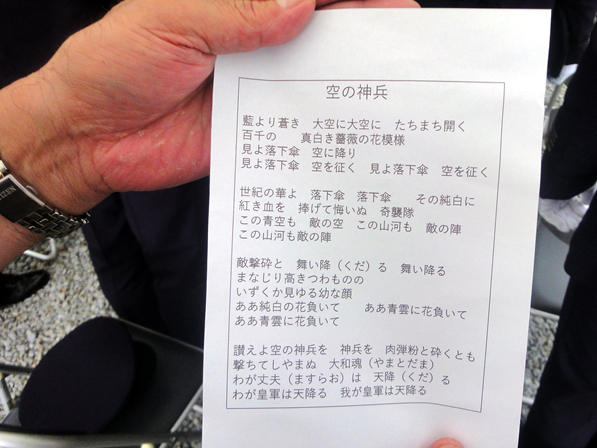 空の神兵
藍より蒼き　大空に大空に　たちまち開く
百千の　　真白き薔薇の花模様
見よ落下傘　空に降り
見よ落下傘　空を征く　見よ落下傘　空を征く
世紀の華よ　落下傘　落下傘　　その純白に
紅き血を　捧げて悔いぬ　奇襲隊
この青空も　敵の空　この山河も　敵の陣
この山河も敵の陣
敵撃砕と　舞い降（くだ）る　舞い降る
まなじり高きつわものの
いずくか見ゆる幼な顔
ああ純白の花負いて　　ああ青雲に花負いて
ああ青雲に花負いて
讃えよ空の神兵を　神兵を　肉弾粉と砕くとも
撃ちてしやまぬ　大和魂（やまとだま）
わが丈夫（ますらお）は　天降（くだ）る
わが皇軍は天降る　我が皇軍は天降る